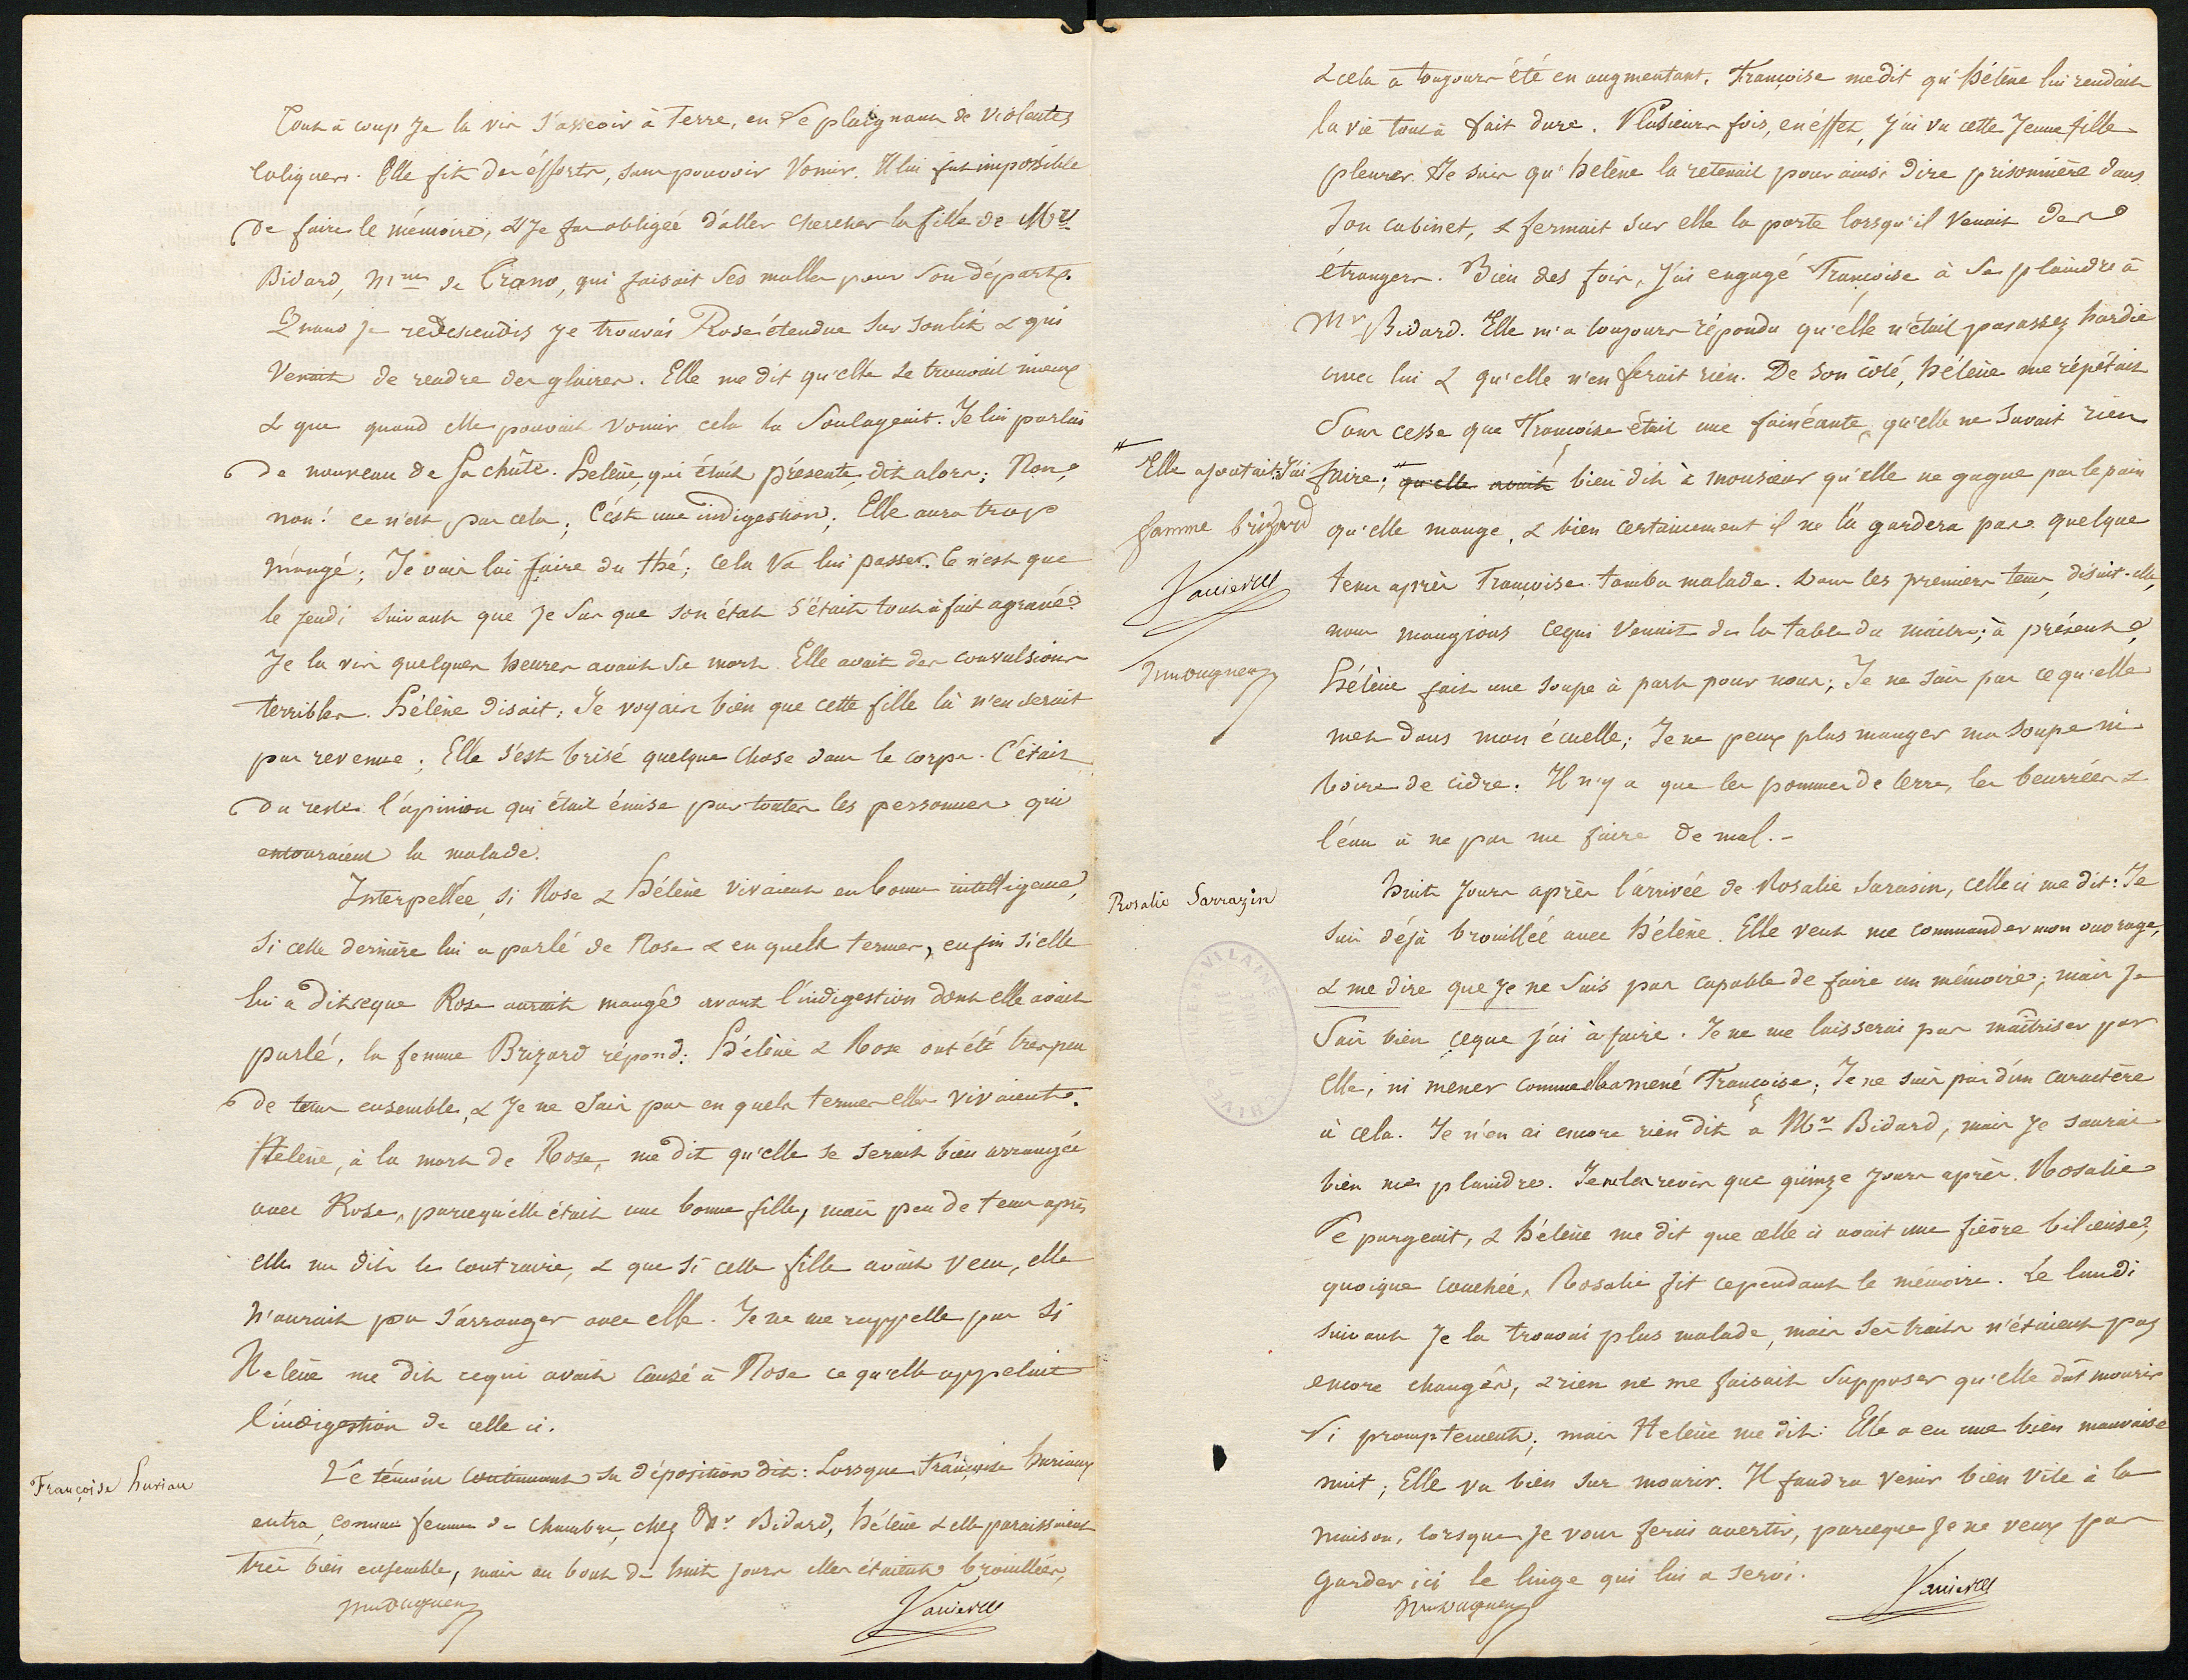 Tout à coup Je la vis s'asseoir à Terre, en Se plaignant de violentes
Coliques. Elle fit des éfforts, sans pouvoir Vomir. Il lui fut impossible
de faire le mémoire, & Je fus obligée d'aller chercher la fille de Mr
Bidard, Mme de Cirano, qui faisait Ses malles pour Son départ.
Quand je redescendis Je trouvai Rose étendue Sur Son lit & qui
Venait de rendre des glaires. Elle me dit qu'elle Se trouvait mieux
& que quand elle pouvait vomir cela la Soulageait. Je lui parlai
de nouveau de Sa chûte. Helène, qui était présente, dit alors; Non,
non! ce n'est pas cela; C'est une indigestion; Elle aura trop
mangé; Je vais lui faire du thé; cela Va lui passer. Ce n'est que
le Jeudi Suivant que Je Sus que Son état s'était tout à fait agravé.
Je la vis quelques heures avant Sa mort. Elle avait des convulsions
terribles. Hélène disait; Je voyais bien que cette fille là n'en serait
pas revenue; Elle s'est brisé quelque chose dans le corps. C'était
du reste l'opinion qui était émise par toutes les personnes qui
entouraient la malade.
Interpellée, Si Rose & Hélène vivaient en bonne intelligence,
Si cette dernière lui a parlé de Rose & en quels termes, enfin si elle
lui a dit ce que Rose aurait mangé avant l'indigestion dont elle avait
parlé, la femme Brizard répond: Hélène & Rose ont été très peu
de tems ensemble, & Je ne Sais pas en quels termes elles vivaient.
Helène, à la mort de Rose, me dit qu'elle se serait bien arrangée
avec Rose, parcequ'elle était une bonne fille, mais peu de tems après
elle me dit le contraire, & que Si cette fille avait vecu, elle
n'aurait pu s'arranger avec elle. Je ne me rappelle pas si
Helène me dit ce qui avait causé à Rose ce qu'elle appelait
l'indigestion de celle ci.
Françoise huriau
Le témoin continuant sa déposition dit: Lorsque Françoise huriaux
entra, comme femme de chambre, chez Mr Bidard, hélène & elle paraissaient
très bien ensemble, mais au bout de huit jours elles étaient brouillées,
& cela a toujours été en augmentant. Françoise me dit qu'hélène lui rendait
la vie tout à fait dure. Plusieurs fois, en éffet, j'ai vu cette Jeune fille
pleurer. Je sais qu'helène la retenait pour ainsi dire prisonnière dans
Son cabinet, & fermait sur elle la porte lorsqu'il Venait des
étrangers. Bien des fois, J'ai engagé Françoise à Se plaindre à
Mr Bidard. Elle m'a toujours répondu qu'elle n'était pas assez hardie
avec lui & qu'elle n'en ferait rien. De Son côté, hélène me répétait
Sans cesse que Françoise était une fainéante, qu'elle ne Savait rien
faire; # qu'elle avait bien dit à monsieur qu'elle ne gagne pas le pain
# Elle ajoutait: J'ai
femme brizard
qu'elle mange, & bien certainement il ne la gardera pas. quelque
tems après Françoise tomba malade. Dans les premiers tems, disait-elle,
nous mangions ce qui Venait de la table du maître; à présent,
hélène fait une soupe à part pour nous; Je ne Sais pas ce qu'elle
met dans mon écuelle; Je ne peux plus manger ma Soupe ni
boire de cidre. Il n'y a que les pommes de terre, les beurrées &
l'eau à ne pas me faire de mal.-
Rosalie Sarrazin
huit Jours après l'arrivée de Rosalie Sarasin, celle ci me dit: Je
suis déjà brouillée avec hélène. Elle veut me commander mon ouvrage,
& me dire que je ne Suis pas capable de faire un mémoire; mais Je
Sais bien ceque j'ai à faire. Je ne me laisserai pas maîtriser par
elle, ni mener comme elle a mené Françoise; Je ne suis pas d'un caractère
à cela. Je n'en ai encore rien dit à Mr Bidard, mais je saurai
bien me plaindre. Je ne la revis que quinze Jours après. Rosalie
Se purgeait, & hélène me dit que celle ci avait une fièvre bilieuse;
quoique couchée, Rosalie fit cependant le mémoire. Le lundi
suivant Je la trouvai plus malade, mais Ses traits n'étaient pas
encore changés, & rien ne me faisait Supposer qu'elle dût mourir
Si promptement; mais Helène me dit: Elle a eu une bien mauvaise
nuit; Elle va bien Sur mourir. Il faudra venir bien vite à la
maison, lorsque Je vous ferai avertir, parceque Je ne veux pas
garder ici le linge qui lui a servi.